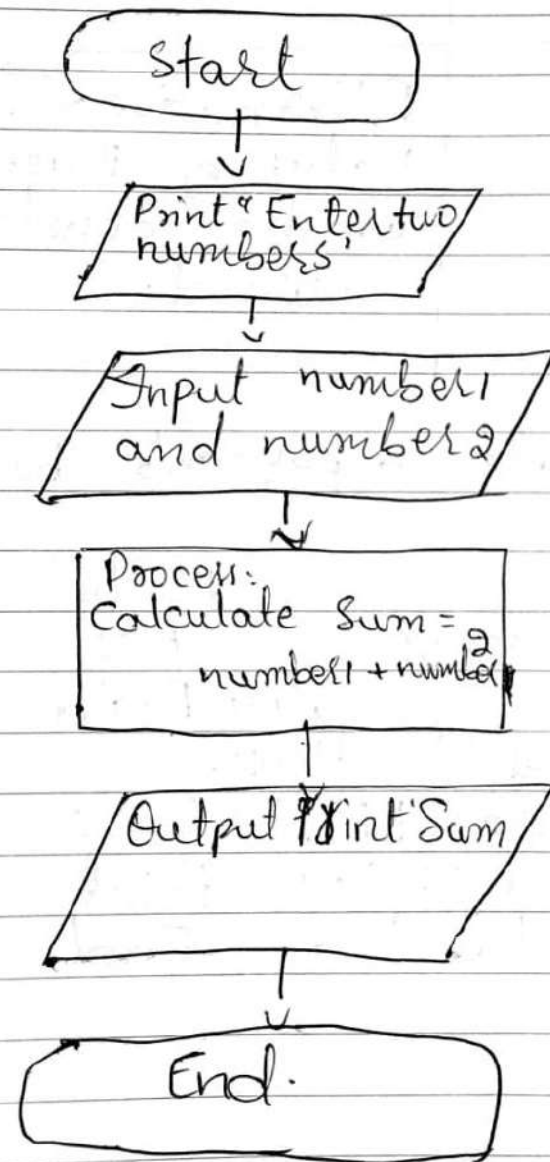 Start
Print "Enter two
numbers'
Input number1
and number2
Process:
Calculate Sum =
number1 + number2
Output Print Sum
End.